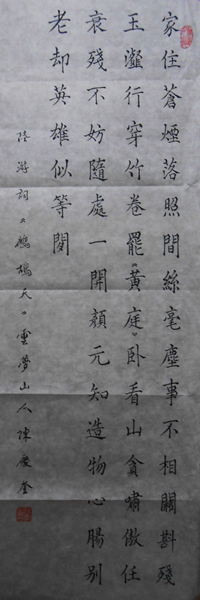 家住蒼煙落照間絲毫塵事不相關斟殘
玉瀣行穿竹卷罷《黃庭》卧看山貪嘯傲任
衰殘不妨隨處一開顏元知造物心腸別
老却英雄似等閒
陸游詞《鷓鴣天》雲夢山人陳慶